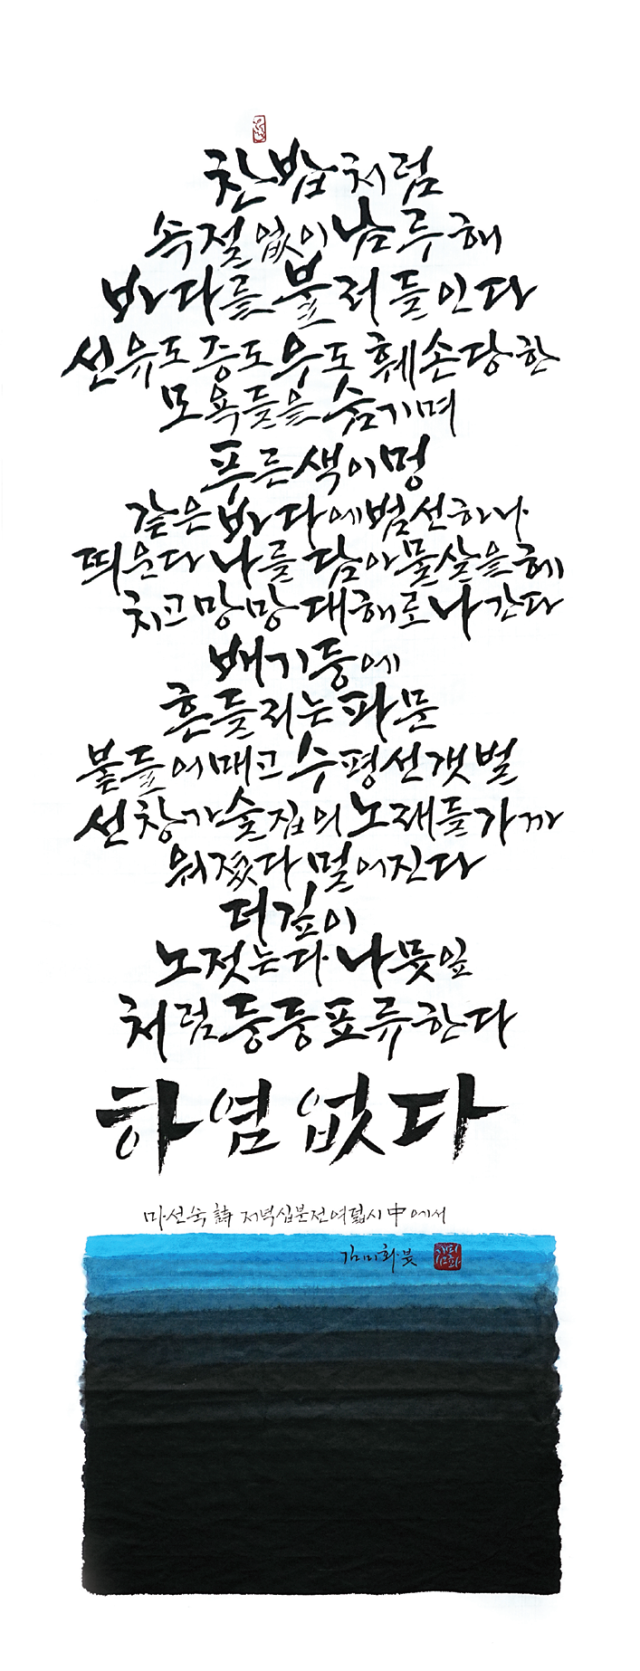 찬밥처럼
속절없이 남루해
바다를 불러들인다
선유도 중도 우도 훼손당한
모욕들을 숨기며
푸른색이 멍
같은 바다에 범선하나
띄운다 나를 담아 물살을 헤
치고 망망대해로 나간다
배기둥에
흔들리는 파문
불들어매고 수평선 갯벌
선창가 술집의 노래들 가까
워졌다 멀어진다
더 깊이
노젓는다 나뭇잎
처럼 둥둥 표류한다
하염없다
마선숙 詩 저녁 십분전 여덟시 中에서
김미화 붓